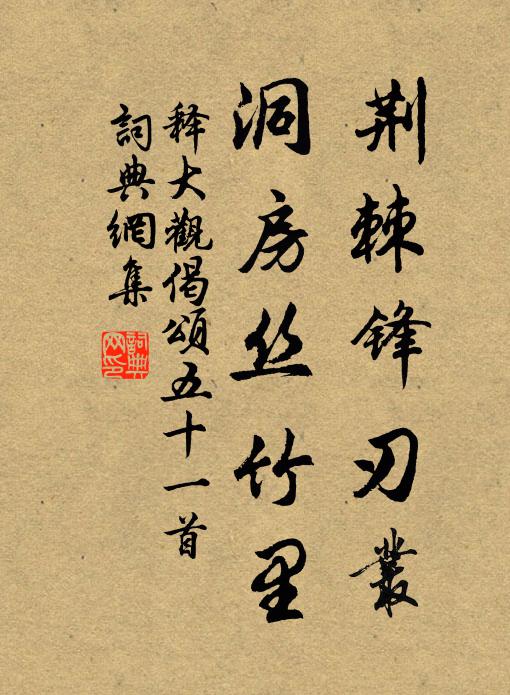 荆棘锋刃叢
洞房丝竹里
释大觀偈頌五十一首
詞典網集
詞典网印